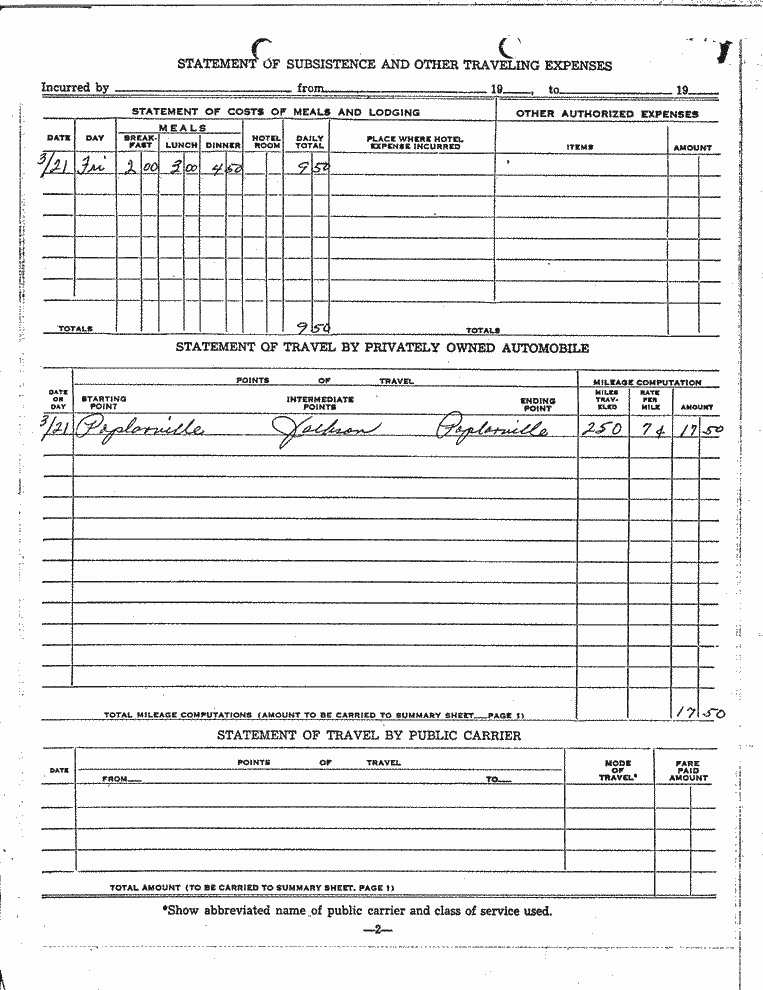 STATEMENT OF SUBSISTENCE AND OTHER TRAVELING EXPENSES
Incurred by from 19 , to 19
STATEMENT OF COSTS OF MEALS AND LODGING OTHER AUTHORIZED EXPENSES
DATE DAY MEALS BREAK-FAST LUNCH DINNER HOTEL ROOM DAILY TOTAL PLACE WHERE HOTEL EXPENSE INCURRED ITEMS AMOUNT
3/21 Fri 2 00 3 00 4 50 9 50
TOTALS 9 50 TOTALS
STATEMENT OF TRAVEL BY PRIVATELY OWNED AUTOMOBILE
POINTS OF TRAVEL MILEAGE COMPUTATION
DATE OR DAY STARTING POINT INTERMEDIATE POINTS ENDING POINT MILES TRAV-ELED RATE PER MILE AMOUNT
3/21 Poplarville Jackson Poplarville 250 7¢ 17 50
TOTAL MILEAGE COMPUTATIONS (AMOUNT TO BE CARRIED TO SUMMARY SHEET—PAGE 1) 17 50
STATEMENT OF TRAVEL BY PUBLIC CARRIER
DATE POINTS OF TRAVEL MODE OF TRAVEL* FARE PAID AMOUNT
FROM— TO—
TOTAL AMOUNT (TO BE CARRIED TO SUMMARY SHEET. PAGE 1)
*Show abbreviated name of public carrier and class of service used.
—2—